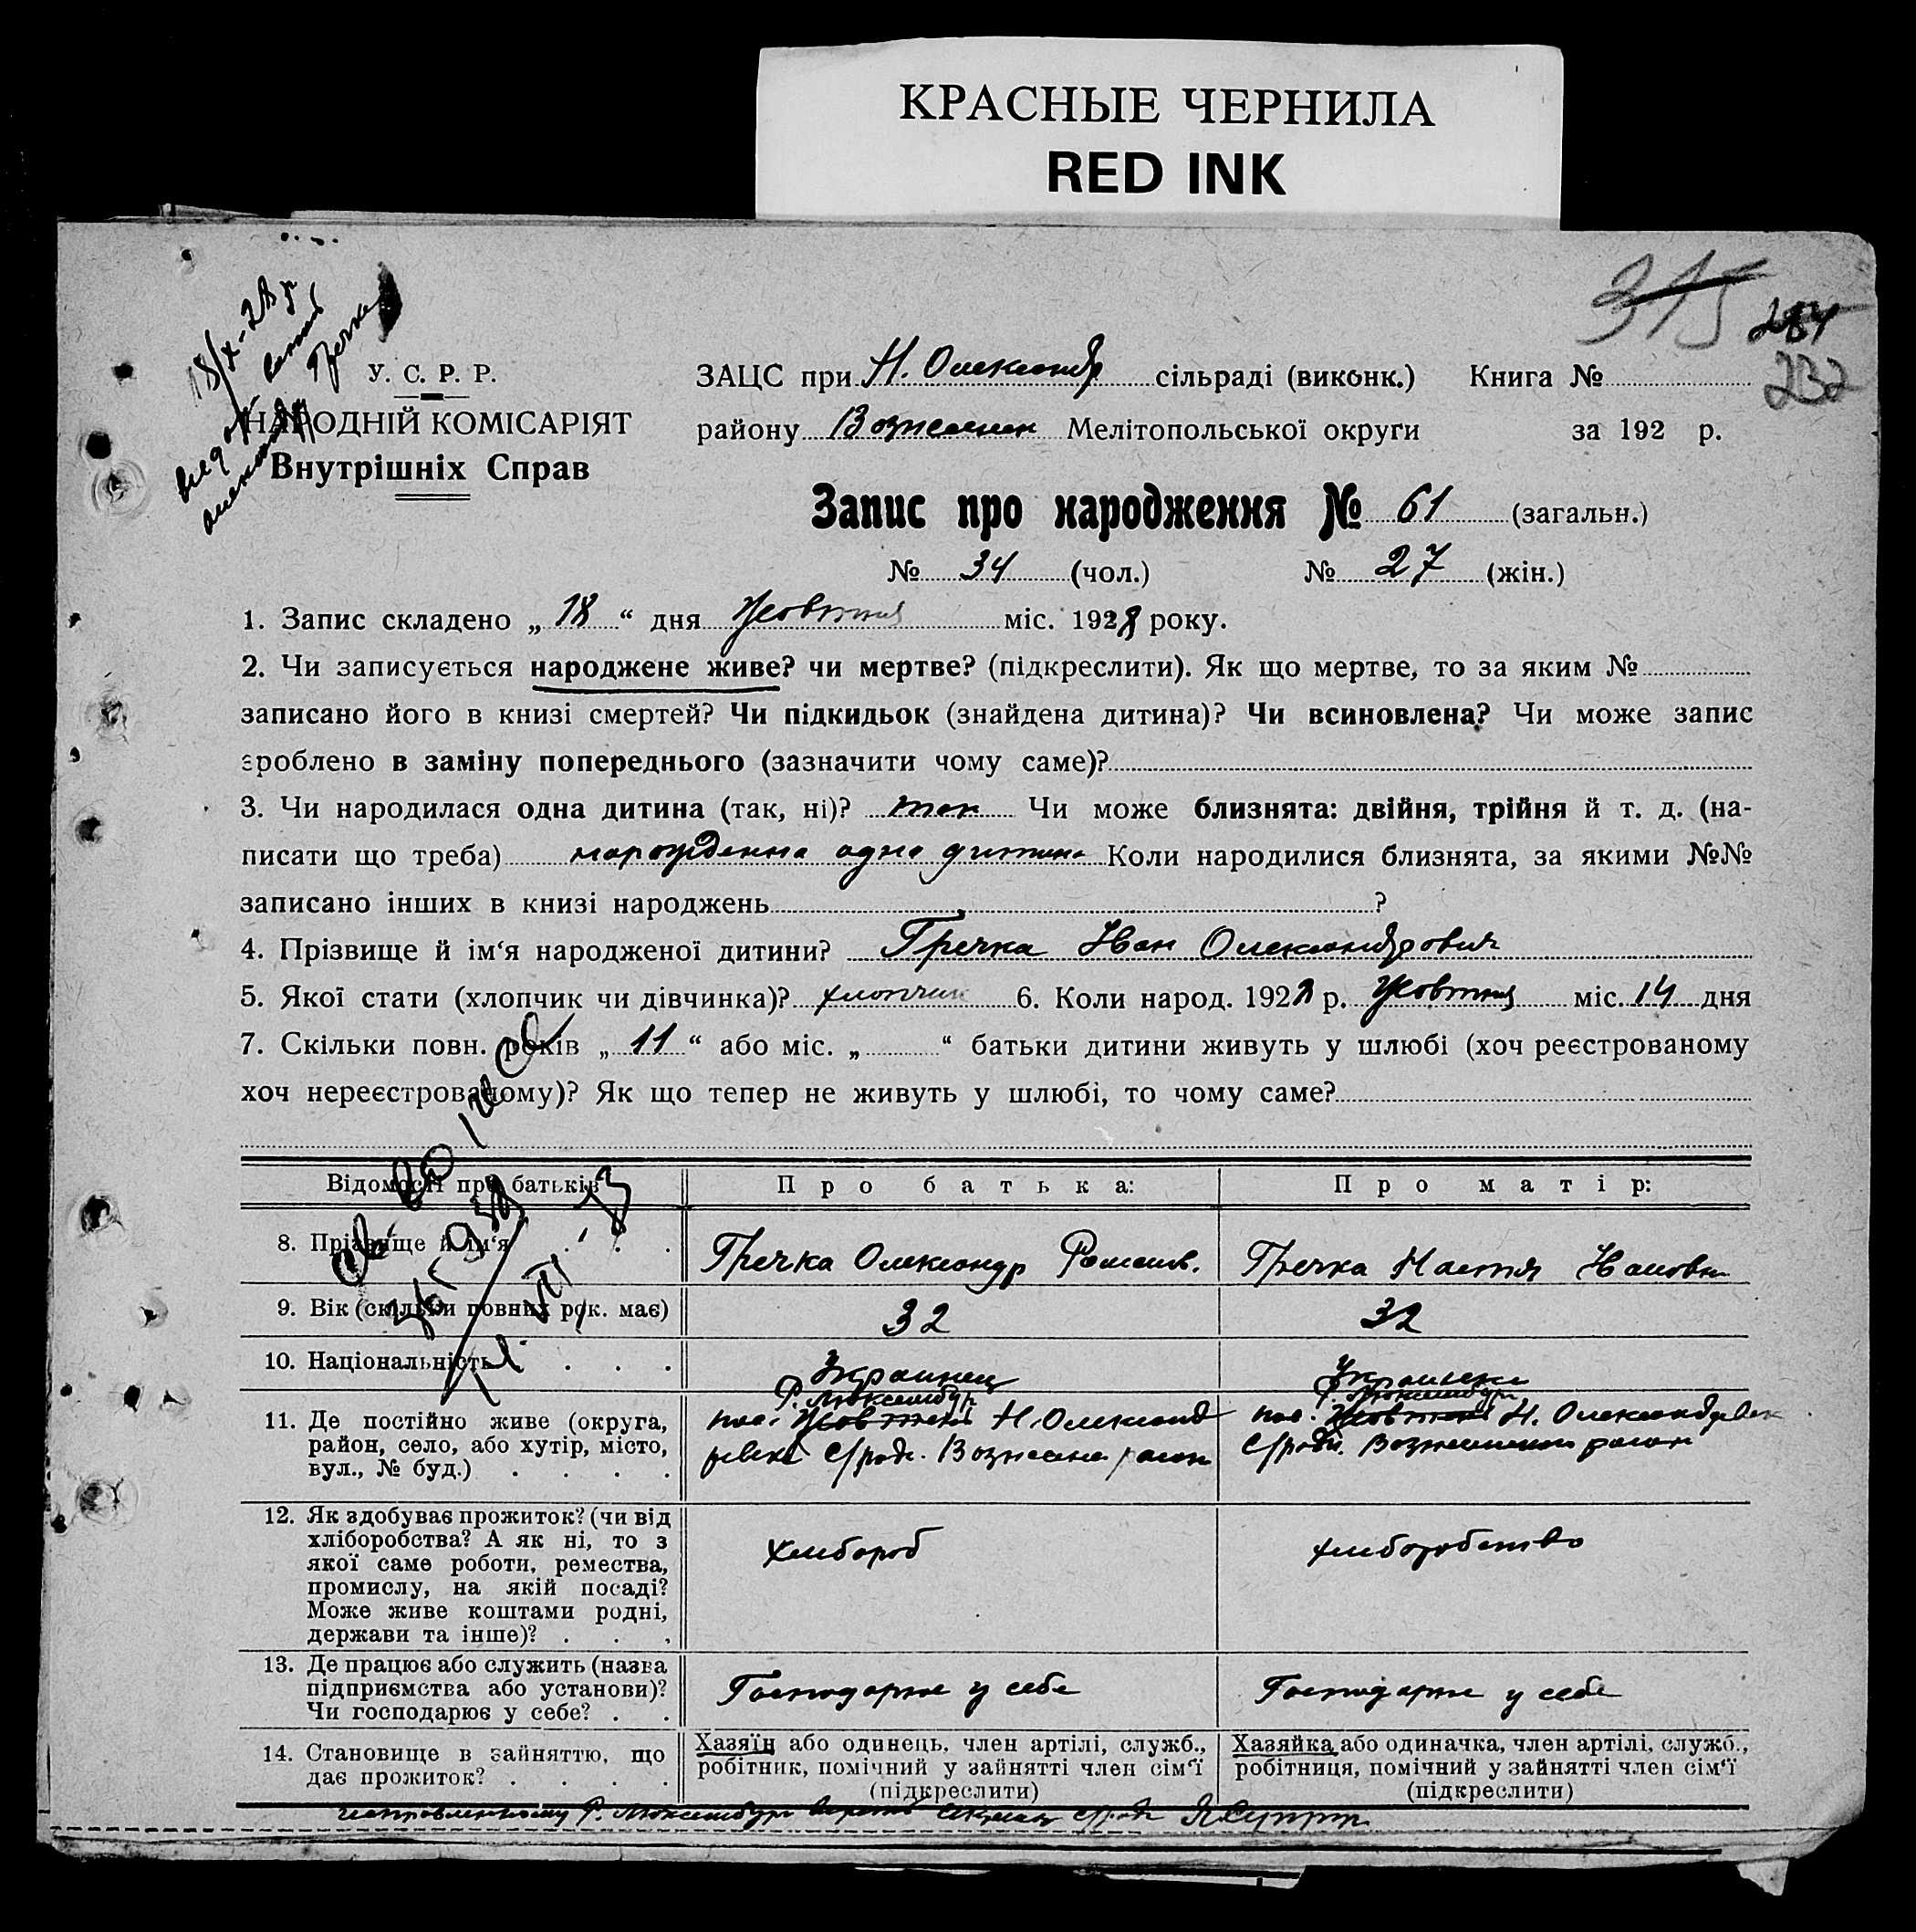 КРАСНЫЕ ЧЕРНИЛА
RED INK
315
232
18/X-28 р
Гречка
У. С. Р. Р.
НАРОДНІЙ КОМІСАРІЯТ
Внутрішніх Справ
ЗАЦС при Н. Олександр сільраді (виконк.) Книга №
району Вознесенск Мелітопольської округи за 192 р.
Запис про народження № 61 (загальн.)
№ 34 (чол.) № 27 (жін.)
1. Запис складено „ 18 “ дня Жовтня міс. 1928 року.
2. Чи записується народжене живе? чи мертве? (підкреслити). Як що мертве, то за яким №
записано його в книзі смертей? Чи підкидьок (знайдена дитина)? Чи всиновлена? Чи може запис
зроблено в заміну попереднього (зазначити чому саме)?
3. Чи народилася одна дитина (так, ні)? так Чи може близнята: двійня, трійня й т. д. (на-
писати що треба) нарожденна одна дитина Коли народилися близнята, за якими №№
записано інших в книзі народжень ?
4. Прізвище й ім‘я народженої дитини? Гречка Іван Олександрович
5. Якої стати (хлопчик чи дівчинка)? хлопчик 6. Коли народ. 1928 р. Жовтня міс. 14 дня
7. Скільки повн. років „ 11 “ або міс. „ “ батьки дитини живуть у шлюбі (хоч реєстрованому
хоч нереєстрованому)? Як що тепер не живуть у шлюбі, то чому саме?
Відомості про батьків Про батька: Про матір:
8. Прізвище й ім‘я . . . Гречка Олександр Роман. Гречка Настя Ивановн
9. Вік (скільки повних рок. має) 32 32
10. Національність . . . Украинец Украинка
Р. Люксембург Р. Люксембург
11. Де постійно живе (округа, пос. Жовтень Н. Олександ пос. Жовтень Н. Олександровск
район, село, або хутір, місто, ровска с/рада. Вознесенс район с/ради. Вознесенски район
вул., № буд.) . . . .
12. Як здобуває прожиток? (чи від
хліборобства? А як ні, то з хлибороб хлиборобство
якої саме роботи, ремества,
промислу, на якій посаді?
Може живе коштами родні,
держави та інше)? . . .
13. Де працює або служить (назва
підприємства або установи)? Господарює у себе Господарює у себе
Чи господарює у себе? . .
14. Становище в зайняттю, що Хазяїн або одинець, член артілі, служб., Хазяйка або одиначка, член артілі, служб.,
дає прожиток? . . . . робітник, помічний у зайнятті член сім‘ї робітниця, помічний у зайнятті член сім‘ї
(підкреслити) (підкреслити)
исправленному Р. Люксембург верить с/ради